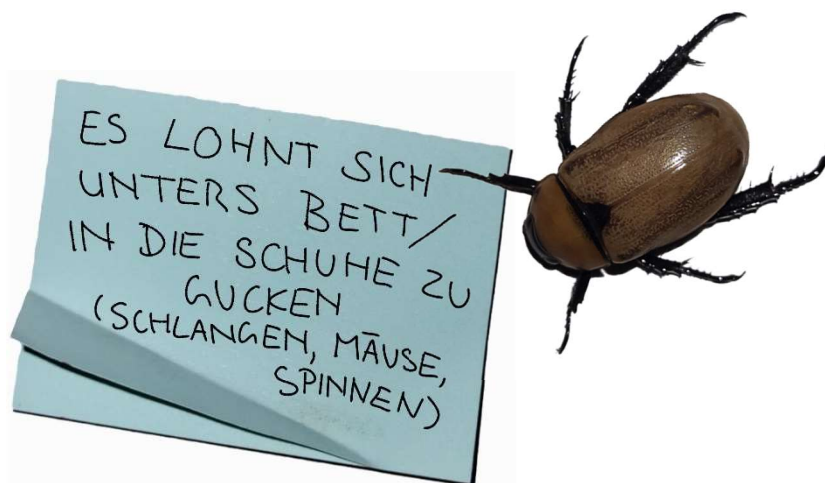 ES LOHNT SICH
UNTERS BETT/
IN DIE SCHUHE ZU
GUCKEN
(SCHLANGEN, MÄUSE,
SPINNEN)